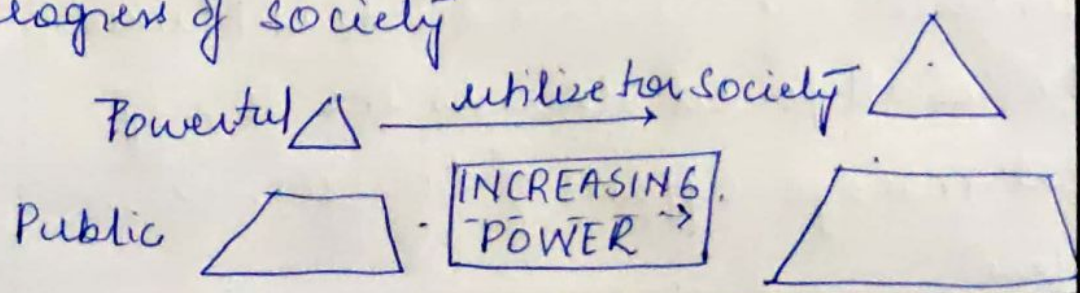 rogress of society
Powerful utilize for society
Public INCREASING
POWER →